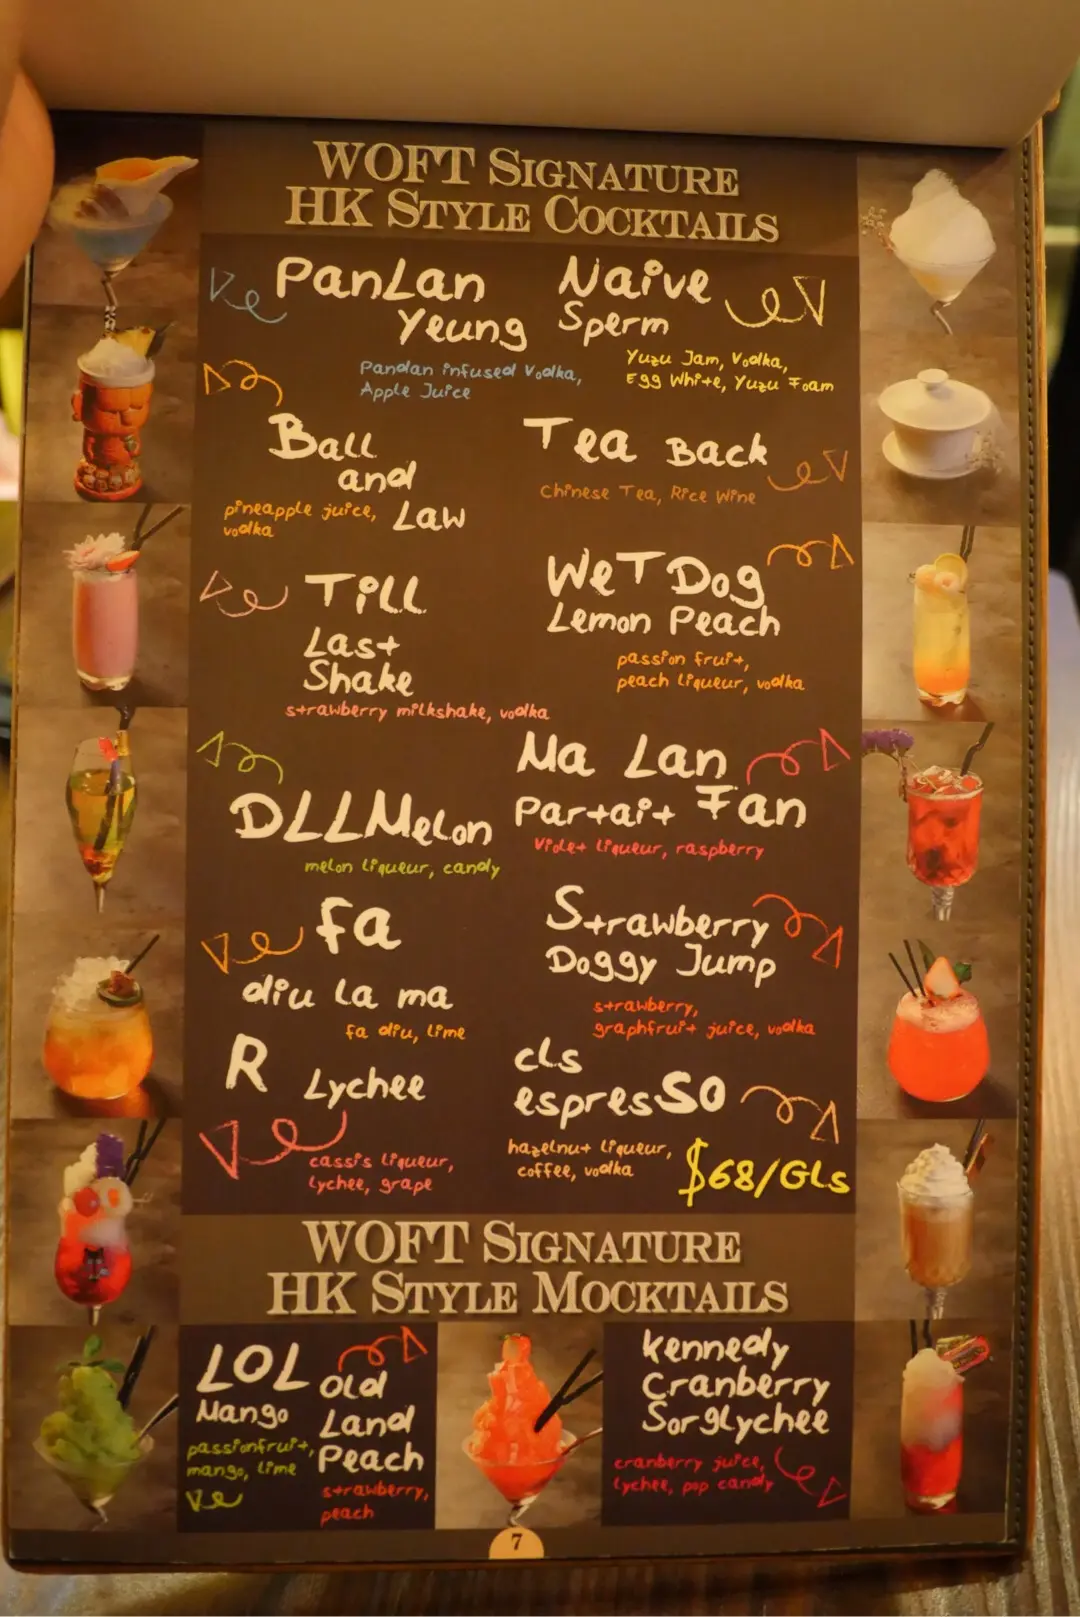 WOFT SIGNATURE
HK STYLE COCKTAILS
PanLan
Yeung
Pandan infused Vodka,
Apple Juice
Naive
Sperm
Yuzu Jam, Vodka,
Egg White, Yuzu Foam
Ball
and
Law
pineapple juice,
vodka
Tea Back
Chinese Tea, Rice Wine
Till
Last
Shake
strawberry milkshake, vodka
Wet Dog
Lemon Peach
passion fruit,
peach liqueur, vodka
DLLMelon
melon liqueur, candy
Ma Lan
Partait Fan
Violet liqueur, raspberry
fa
diu la ma
fa diu, lime
Strawberry
Doggy Jump
strawberry,
graphfruit juice, vodka
R Lychee
cassis liqueur,
lychee, grape
cls
espresso
hazelnut liqueur,
coffee, vodka
$68/GLs
WOFT SIGNATURE
HK STYLE MOCKTAILS
LOL
Mango
passionfruit,
mango, lime
Old
Land
Peach
strawberry,
peach
kennedy
Cranberry
Sorglychee
cranberry juice,
lychee, pop candy
7